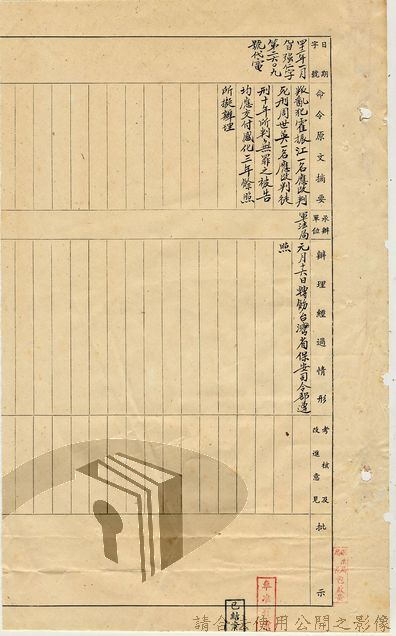 日期
字號
命令原文摘要
承辦
單位
辦理經過情形
考核及
改進意見
批示
四十三年一月
智强仁字
第二六〇九
號代電
叛亂犯霍振江一名應改判
死刑周世英一名應改判徒
刑十年所判無罪之被告
均應交付感化三年餘照
所擬辦理
軍法局
元月十六日轉飭台灣省保安司令部遵
照
已結案
請合法使用公開之影像